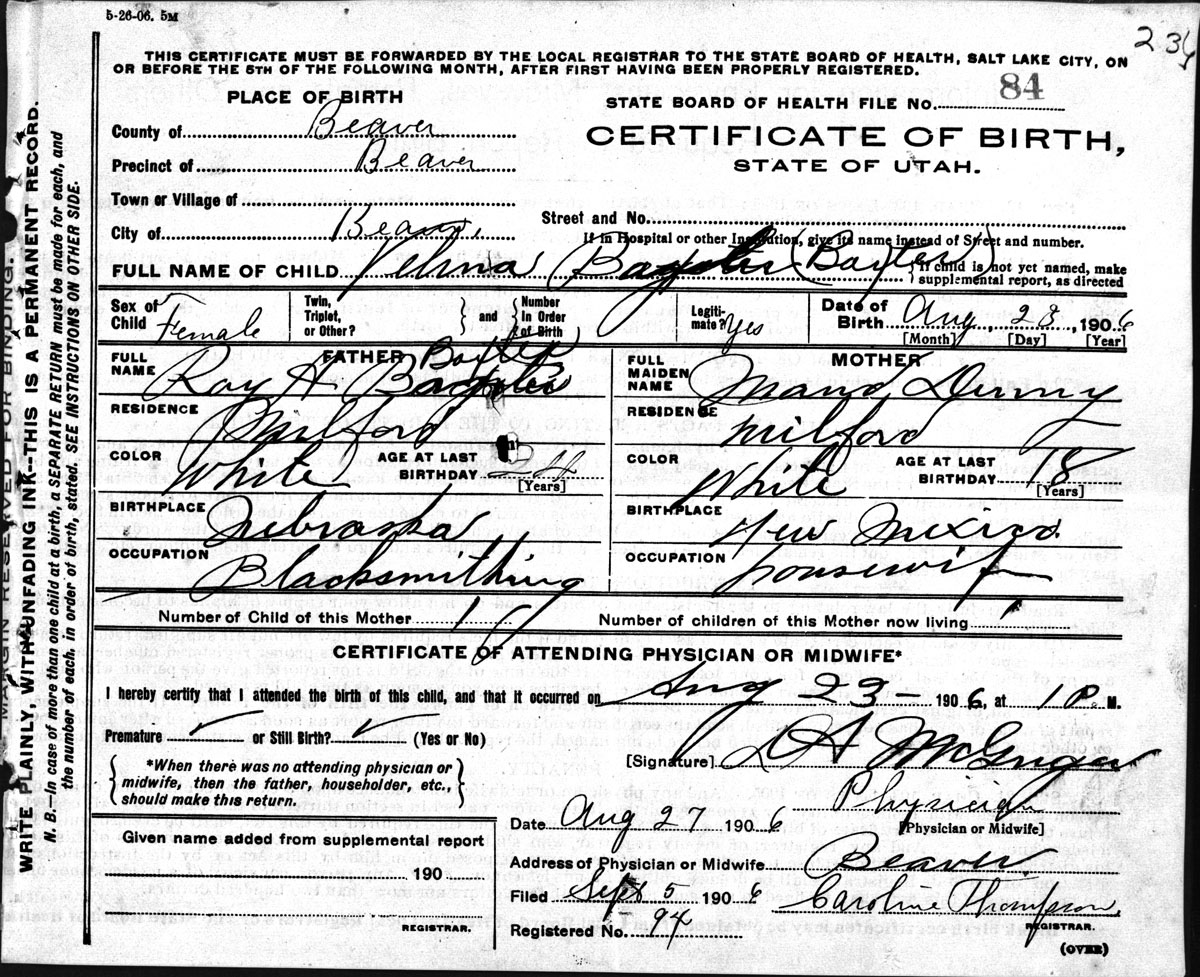 5-26-06. 5M
234
THIS CERTIFICATE MUST BE FORWARDED BY THE LOCAL REGISTRAR TO THE STATE BOARD OF HEALTH, SALT LAKE CITY, ON
OR BEFORE THE 5TH OF THE FOLLOWING MONTH, AFTER FIRST HAVING BEEN PROPERLY REGISTERED.
PLACE OF BIRTH
STATE BOARD OF HEALTH FILE No. 84
County of Beaver
CERTIFICATE OF BIRTH,
STATE OF UTAH.
Precinct of Beaver
Town or Village of
Street and No.
City of Beaver
If in Hospital or other Institution, give its name instead of Street and number.
FULL NAME OF CHILD Velma (Baxter)
If child is not yet named, make
supplemental report, as directed
Sex of Child Female
Twin, Triplet, or Other?
and
Number In Order of Birth
Legiti-mate? Yes
Date of Birth Aug, 23, 1906
[Month] [Day] [Year]
FATHER
FULL NAME Roy H. Baxter
RESIDENCE Milford
COLOR White
AGE AT LAST BIRTHDAY 24
[Years]
BIRTHPLACE Nebraska
OCCUPATION Blacksmithing
MOTHER
FULL MAIDEN NAME
RESIDENCE Milford
COLOR White
AGE AT LAST BIRTHDAY 18
[Years]
BIRTHPLACE New Mexico
OCCUPATION housewife
Number of Child of this Mother 1
Number of children of this Mother now living 1
CERTIFICATE OF ATTENDING PHYSICIAN OR MIDWIFE*
I hereby certify that I attended the birth of this child, and that it occurred on Aug 23- 1906, at 1 P. M.
Premature or Still Birth? (Yes or No)
*When there was no attending physician or
midwife, then the father, householder, etc.,
should make this return.
[Signature]
Physician
[Physician or Midwife]
Date Aug 27 1906
Given name added from supplemental report
190
REGISTRAR.
Address of Physician or Midwife Beaver
Filed Sept 5 1906 Caroline Thompson
REGISTRAR.
Registered No. 94
(OVER)
MARGIN RESERVED FOR BINDING.
WRITE PLAINLY, WITH UNFADING INK--THIS IS A PERMANENT RECORD.
N. B.—In case of more than one child at a birth, a SEPARATE RETURN must be made for each, and
the number of each, in order of birth, stated. SEE INSTRUCTIONS ON OTHER SIDE.